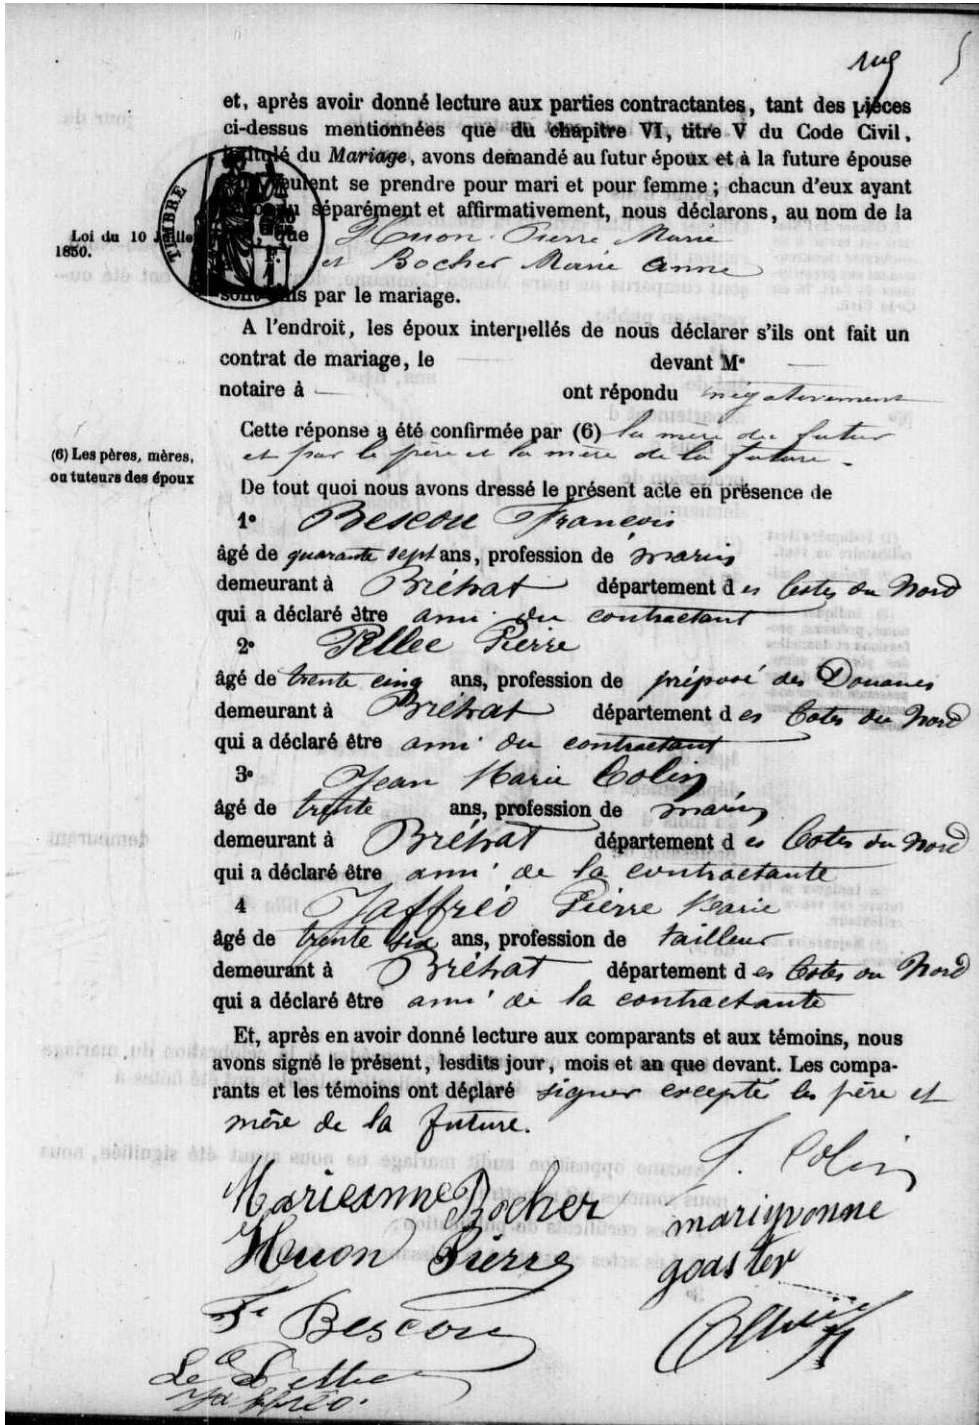 et, après avoir donné lecture aux parties contractantes, tant des pièces
ci-dessus mentionnées que du chapitre VI, titre V du Code Civil,
du Mariage, avons demandé au futur époux et à la future épouse
se prendre pour mari et pour femme ; chacun d'eux ayant
séparément et affirmativement, nous déclarons, au nom de la
Loi du 10
1850.
TIMBRE
que Huon Pierre Marie
et Bocher Marie Anne
sont par le mariage.
A l'endroit, les époux interpellés de nous déclarer s'ils ont fait un
contrat de mariage, le devant Me
notaire à ont répondu négativement
Cette réponse a été confirmée par (6) la mère du futur
(6) Les pères, mères,
ou tuteurs des époux
et par le père et la mère de la future.
De tout quoi nous avons dressé le présent acte en présence de
1° Bescou François
âgé de quarante sept ans, profession de marin
demeurant à Bréhat département des Côtes du Nord
qui a déclaré être ami du contractant
2° Pellec Pierre
âgé de trente cinq ans, profession de préposé des Douanes
demeurant à Bréhat département des Cotes du Nord
qui a déclaré être ami du contractant
3° Jean Marie Colin
âgé de trente ans, profession de marin
demeurant à Bréhat département des Cotes du Nord
qui a déclaré être ami de la contractante
4 Jaffréo Pierre Marie
âgé de trente six ans, profession de tailleur
demeurant à Bréhat département des Cotes du Nord
qui a déclaré être ami de la contractante
Et, après en avoir donné lecture aux comparants et aux témoins, nous
avons signé le présent, lesdits jour, mois et an que devant. Les compa-
rants et les témoins ont déclaré signer excepté les père et
mère de la future.
J. Colin
Marieanne Bocher
mariyvonne
Huon Pierre
goaster
Bescou
Jaffréo.